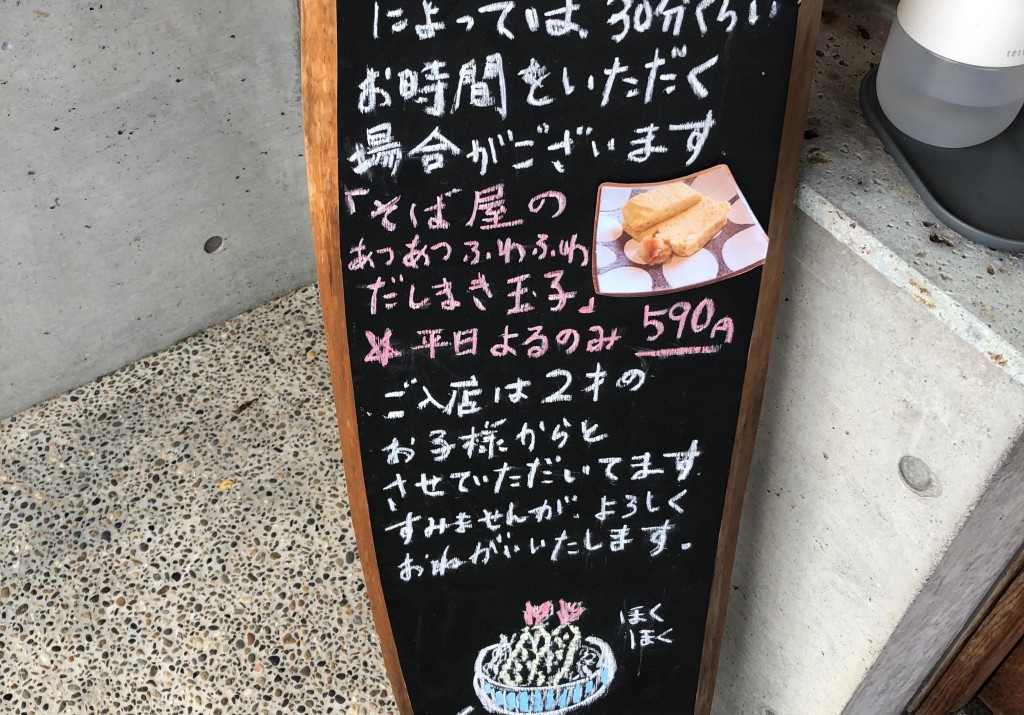 によっては30分くらい
お時間をいただく
場合がございます
「そば屋の
あつあつふわふわ
だしまき玉子」
※平日よるのみ 590円
ご入店は2才の
お子様からと
させていただいてます
すみませんが、よろしく
おねがいいたします。
ほく
ほく